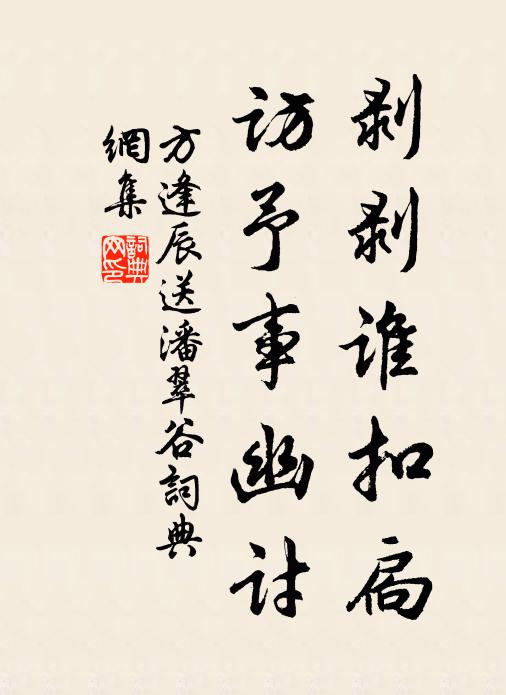 剥剥谁扣扃
访予事幽讨
方逢辰送潘翠谷詞典
網集
詞典網印